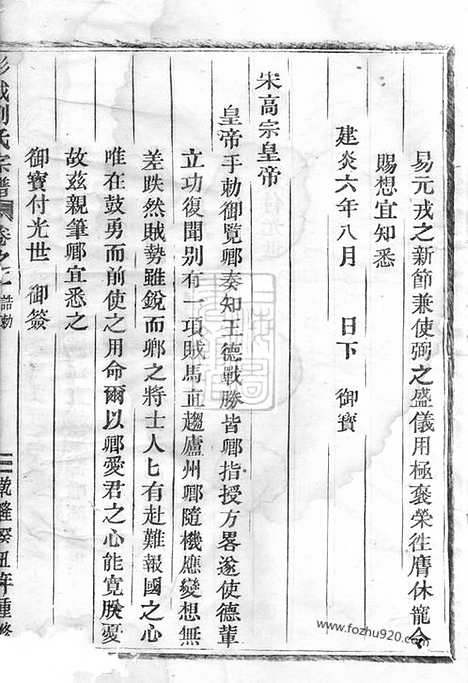 易元戎之新節兼使弼之盛儀用極褒榮徃膺休寵今
賜想宜知悉
建炎六年八月　日下　御寶
宋高宗皇帝
皇帝手勅御覽卿奏知王德戰勝皆卿指授方畧遂使德輩
立功復聞别有一項賊馬直趨廬州卿隨機應變想無
差跌然賊勢雖銳而卿之將士人匕有赴難報國之心
唯在鼓勇而前使之用命爾以卿愛君之心能寛朕憂
故兹親筆卿宜悉之
御寶付光世　御簽
彭城劉氏宗譜　卷之一　誥勅　二　乾隆癸丑年重修
www.fozhu920.com